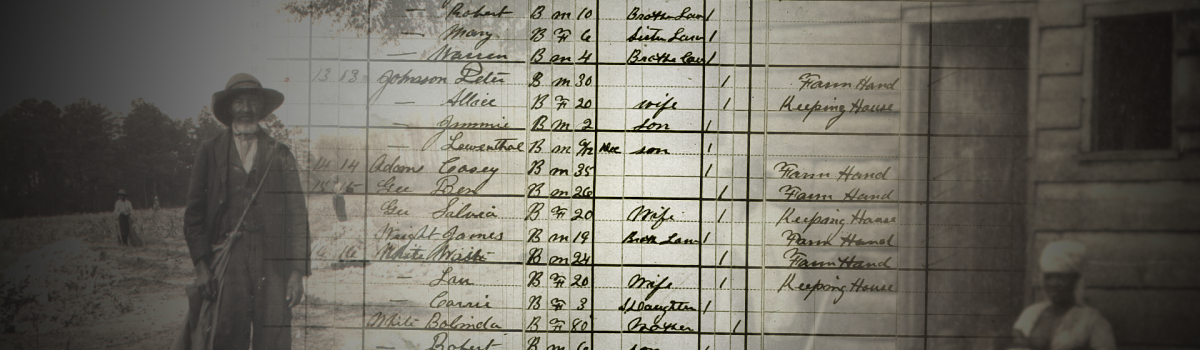 — Robert B m 10 Brother Law 1
— Mary B F 6 Sister Law 1
— Warren B m 4 Brothe law 1
13 13 Johnson Peter B m 30 1 Farm Hand
— Allice B F 20 wife 1 Keeping House
— Jimmie B m 2 son 1
— Lowenthal B m son 1
14 14 Adams Casey B m 35 1 Farm Hand
15 15 Gee Ben B m 26 1 Farm Hand
Gee Salvia B F 20 Wife 1 Keeping House
Wright James B m 19 Broth Law 1 Farm Hand
16 16 White B m 24 1 Farm Hand
— Lou B F 20 Wife 1 Keeping House
— Carrie B F 3 Daughter 1
White Balinda B F 80 Mother 1
— Robert B m 6 son 1